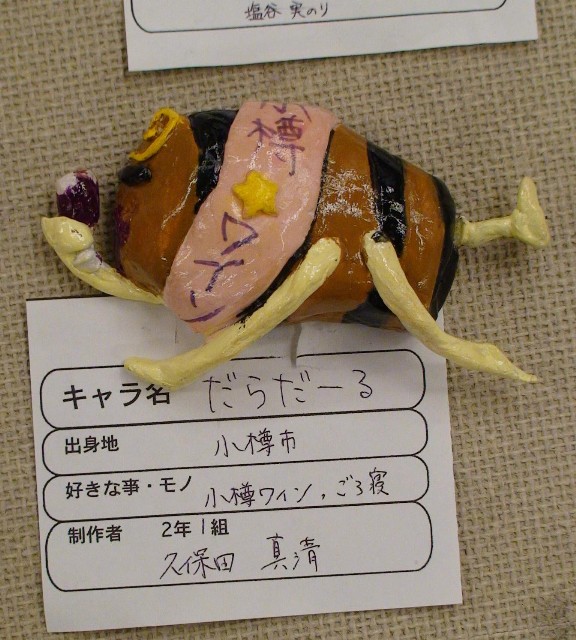 塩谷 実のり
小樽
ワイン
キャラ名 だらだーる
出身地 小樽市
好きな事・モノ 小樽ワイン，ごろ寝
制作者 2年1組
久保田 真清